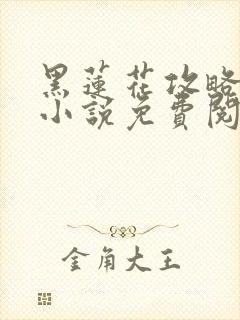 黑蓮花攻略
小說免費閱
金角大王